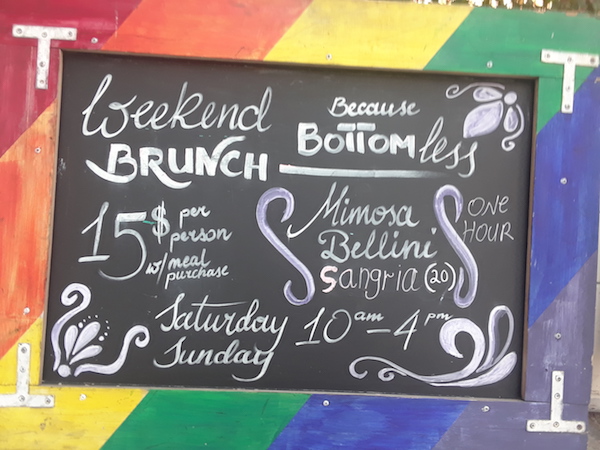 Weekend
BRUNCH
Because
BOTTOMless
15$ per person
w/ meal purchase
Mimosa
Bellini
Sangria (20)
ONE
HOUR
Saturday
Sunday
10am-4pm